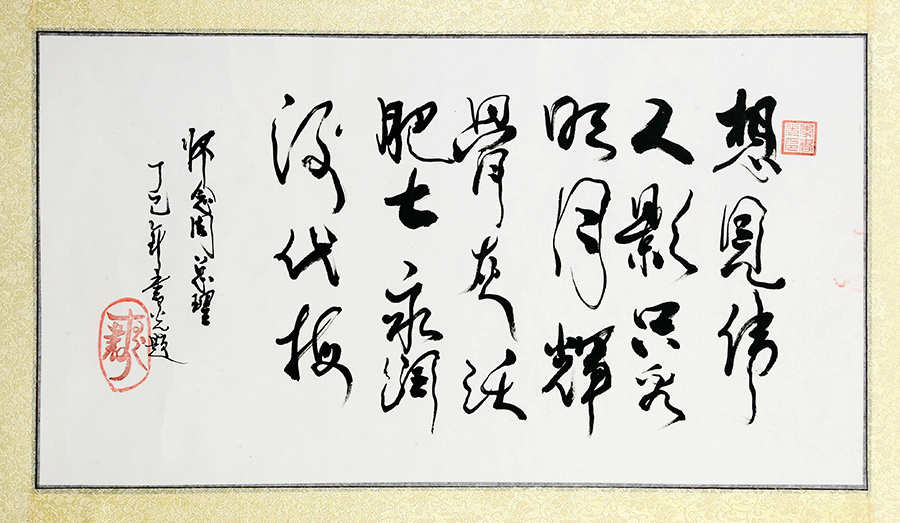 想見偉
人影只看
明月輝
骨灰沃
肥土永潤
後代梅
怀念周总理
丁巳年題